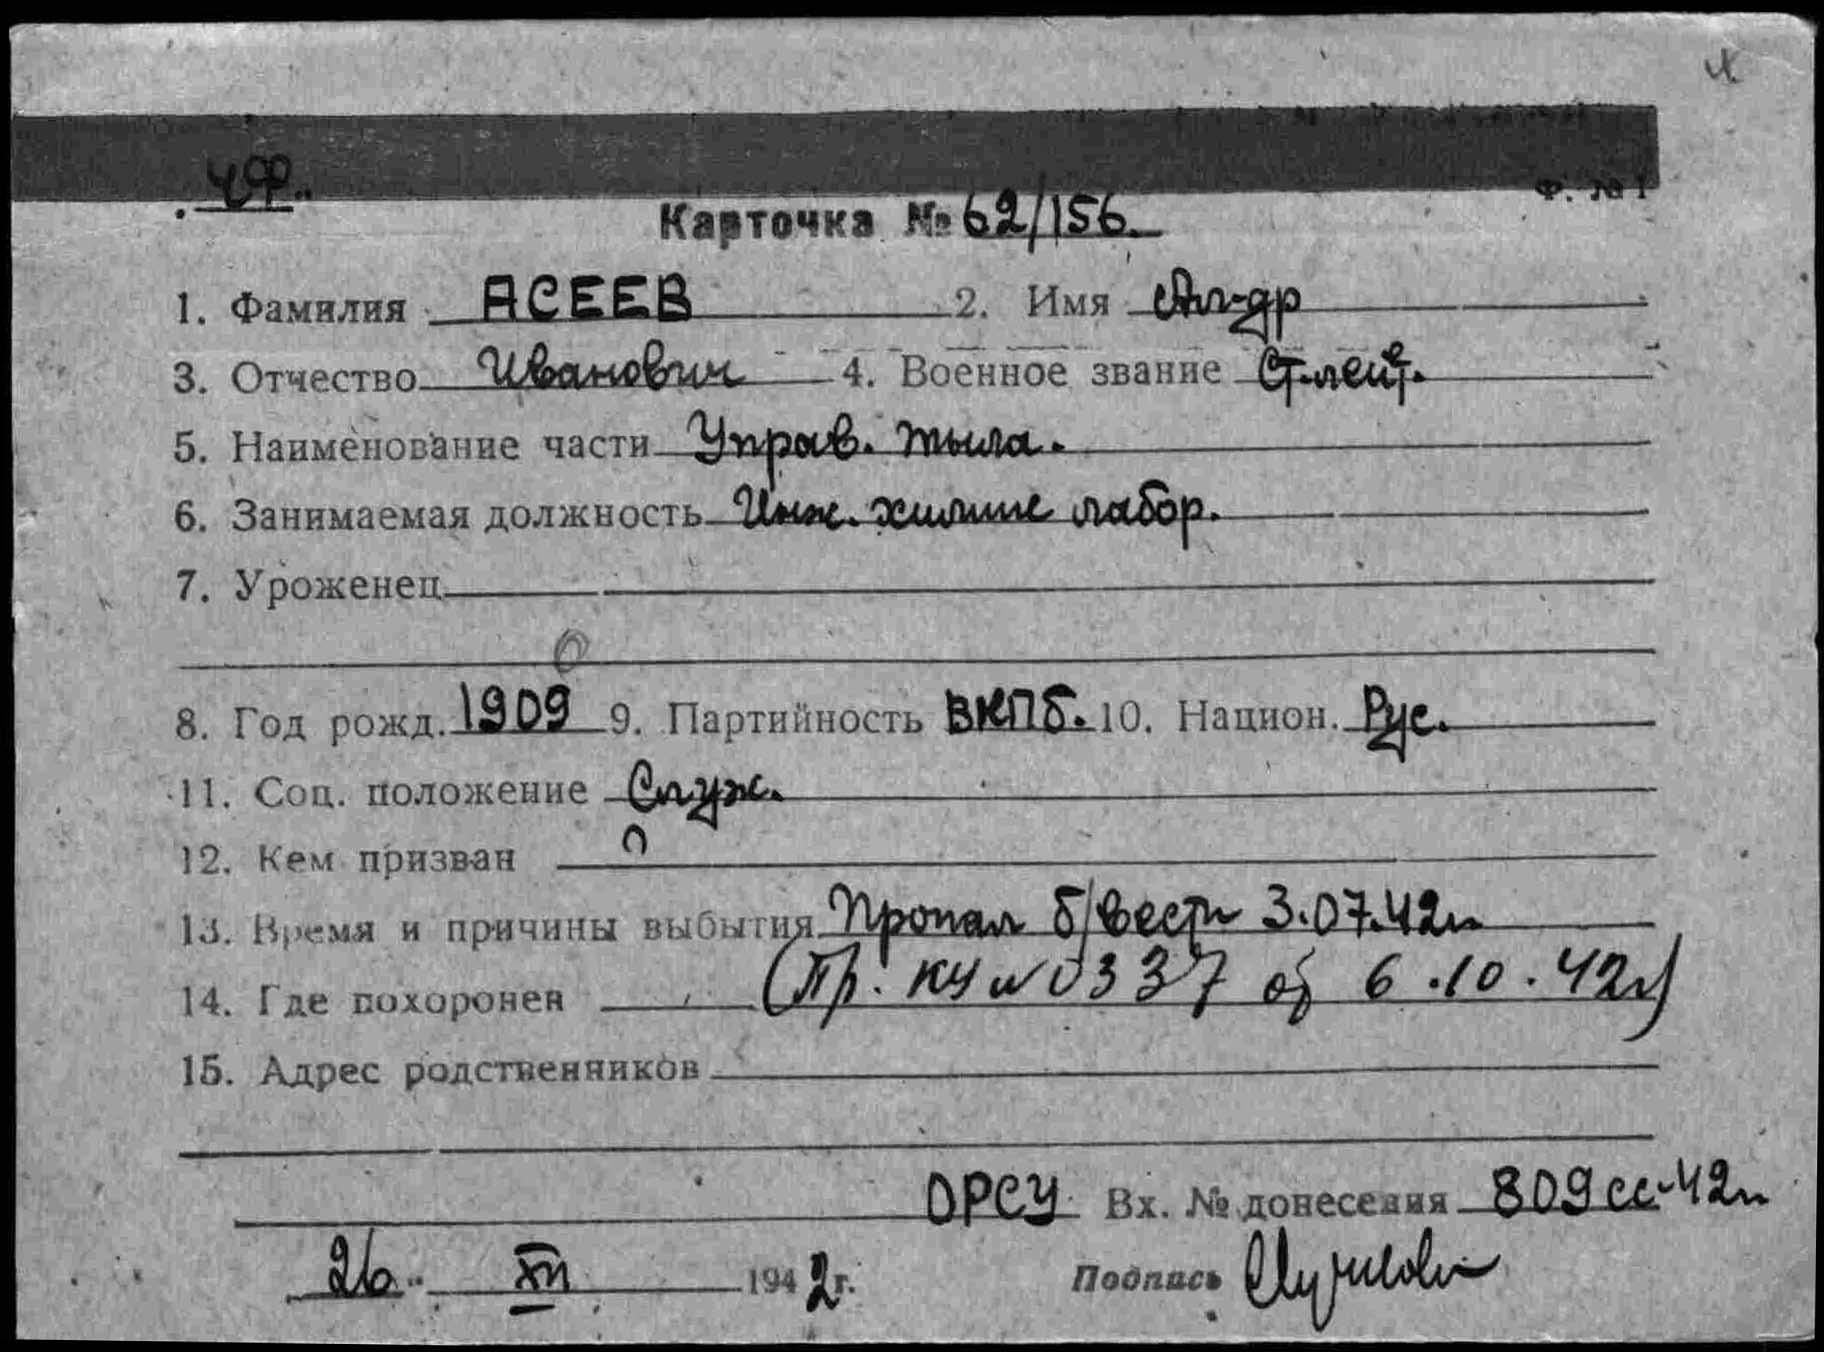 ЧФ.
Ф. № 1
Карточка № 62/156.
1. Фамилия АСЕЕВ 2. Имя Ал-др
3. Отчество Иванович 4. Военное звание Ст. лейт.
5. Наименование части Управ. тыла.
6. Занимаемая должность Инж. химик лабор.
7. Уроженец
8. Год рожд. 1909 9. Партийность ВКПб. 10. Национ. Рус.
11. Соц. положение Служ.
12. Кем призван
13. Время и причины выбытия Пропал б/вести 3.07.42г.
14. Где похоронен (Пр. КЧ № 0337 от 6.10.42г)
15. Адрес родственников
ОРСУ Вх. № донесения 809сс-42г.
26 XII 1942г. Подпись